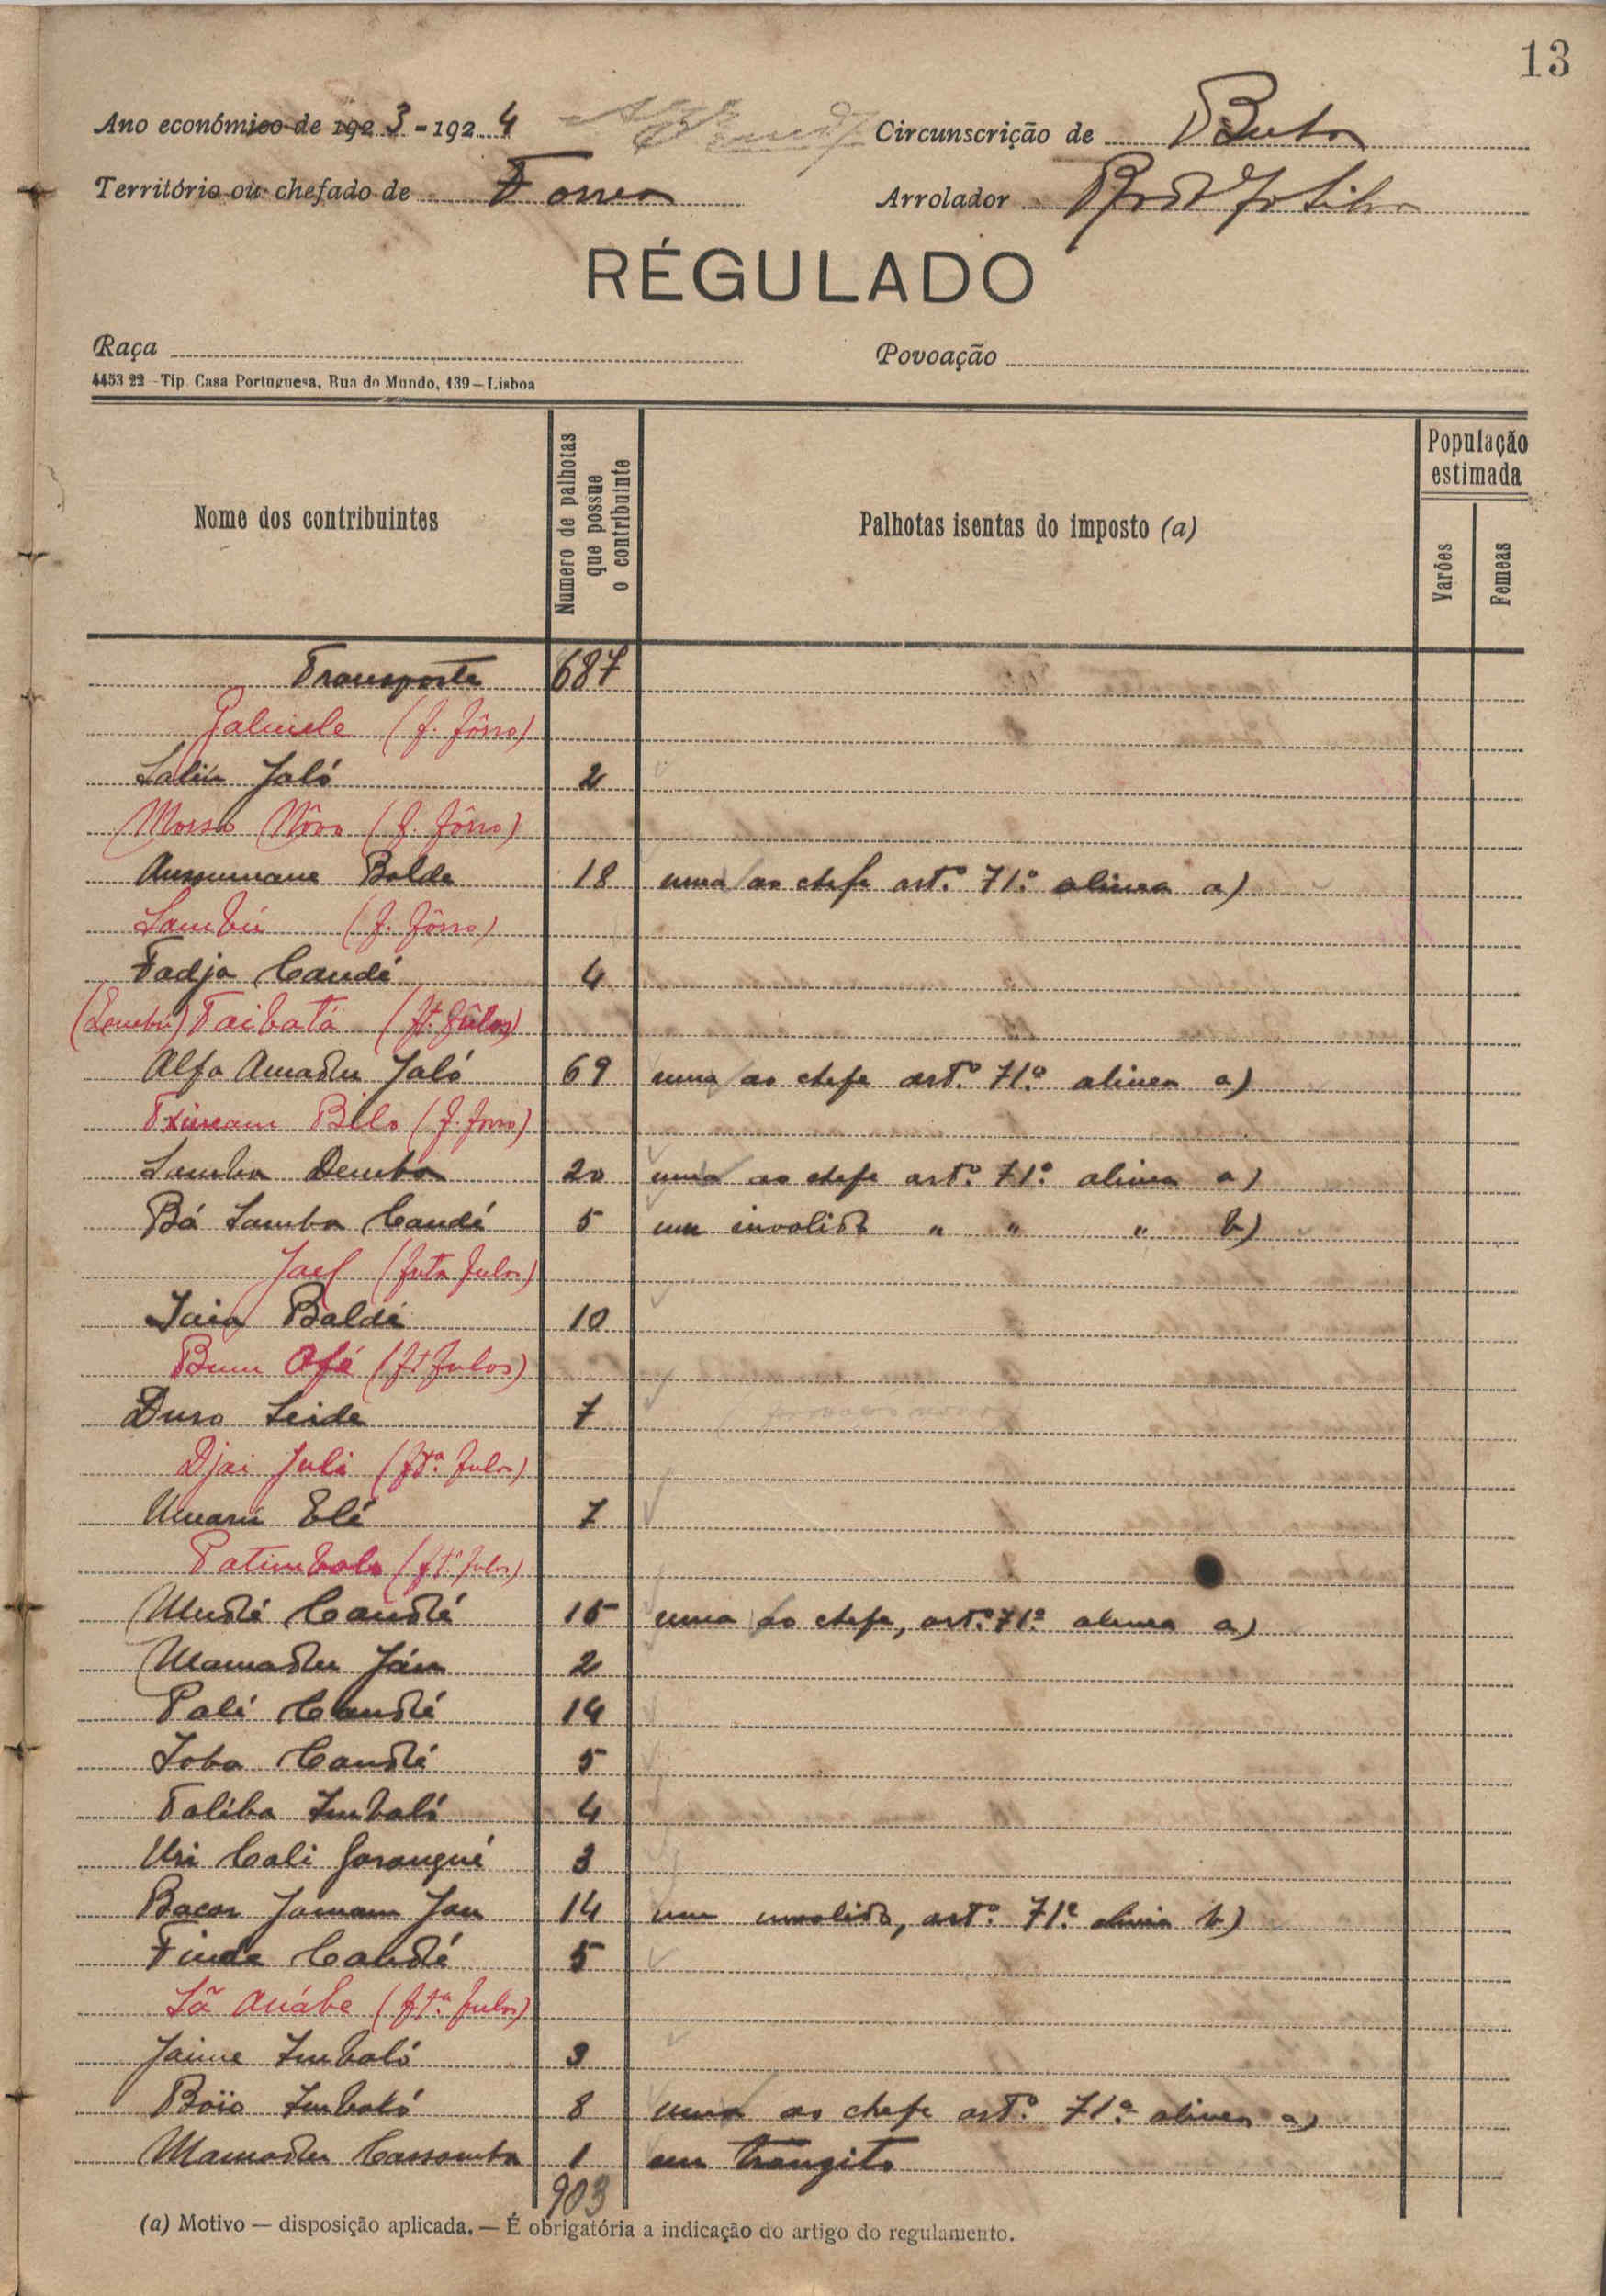 13
Ano económico de 1923-1924
Circunscrição de Buba
Território ou chefado de Forreá
Arrolador
RÉGULADO
Raça
Povoação
4453 22 - Tip. Casa Portuguesa, Rua do Mundo, 139 - Lisboa
Nome dos contribuintes
Numero de palhotas que possue o contribuinte
Palhotas isentas do imposto (a)
População estimada
Varões
Femeas
Transporte 687
(f. fôrro)
Saliu Jaló 2
(f. fôrro)
Aussumane Balde 18 uma ao chefe art.º 71.º alinea a)
Sambú (f. fôrro)
Fadja Candé 4
Taibatá
Alfa Amadu Jaló 69 uma ao chefe art.º 71.º alinea a)
(f. forro)
Samba Demba 20 uma ao chefe art.º 71.º alinea a)
Bá Samba Candé 5 um invalido " " " b)
(futa fulas)
Iaia Baldé 10
(ft fulos)
Duro Seide 7
Djai Juli
Umarú Elé 7
Patimbalo
Candé 15 uma ao chefe, art.º 71.º alinea a)
Mamadu 2
Pali Candé 14
Ioba Candé 5
Taliba Imbaló 4
Uri Cali 3
Bacar 14 um invalido, art.º 71.º alinea b)
Candé 5
Jaime Imbaló 3
Imbaló 8 uma ao chefe art.º 71.º alinea a)
Mamadu 1 um trangito
903
(a) Motivo — disposição aplicada. — É obrigatória a indicação do artigo do regulamento.